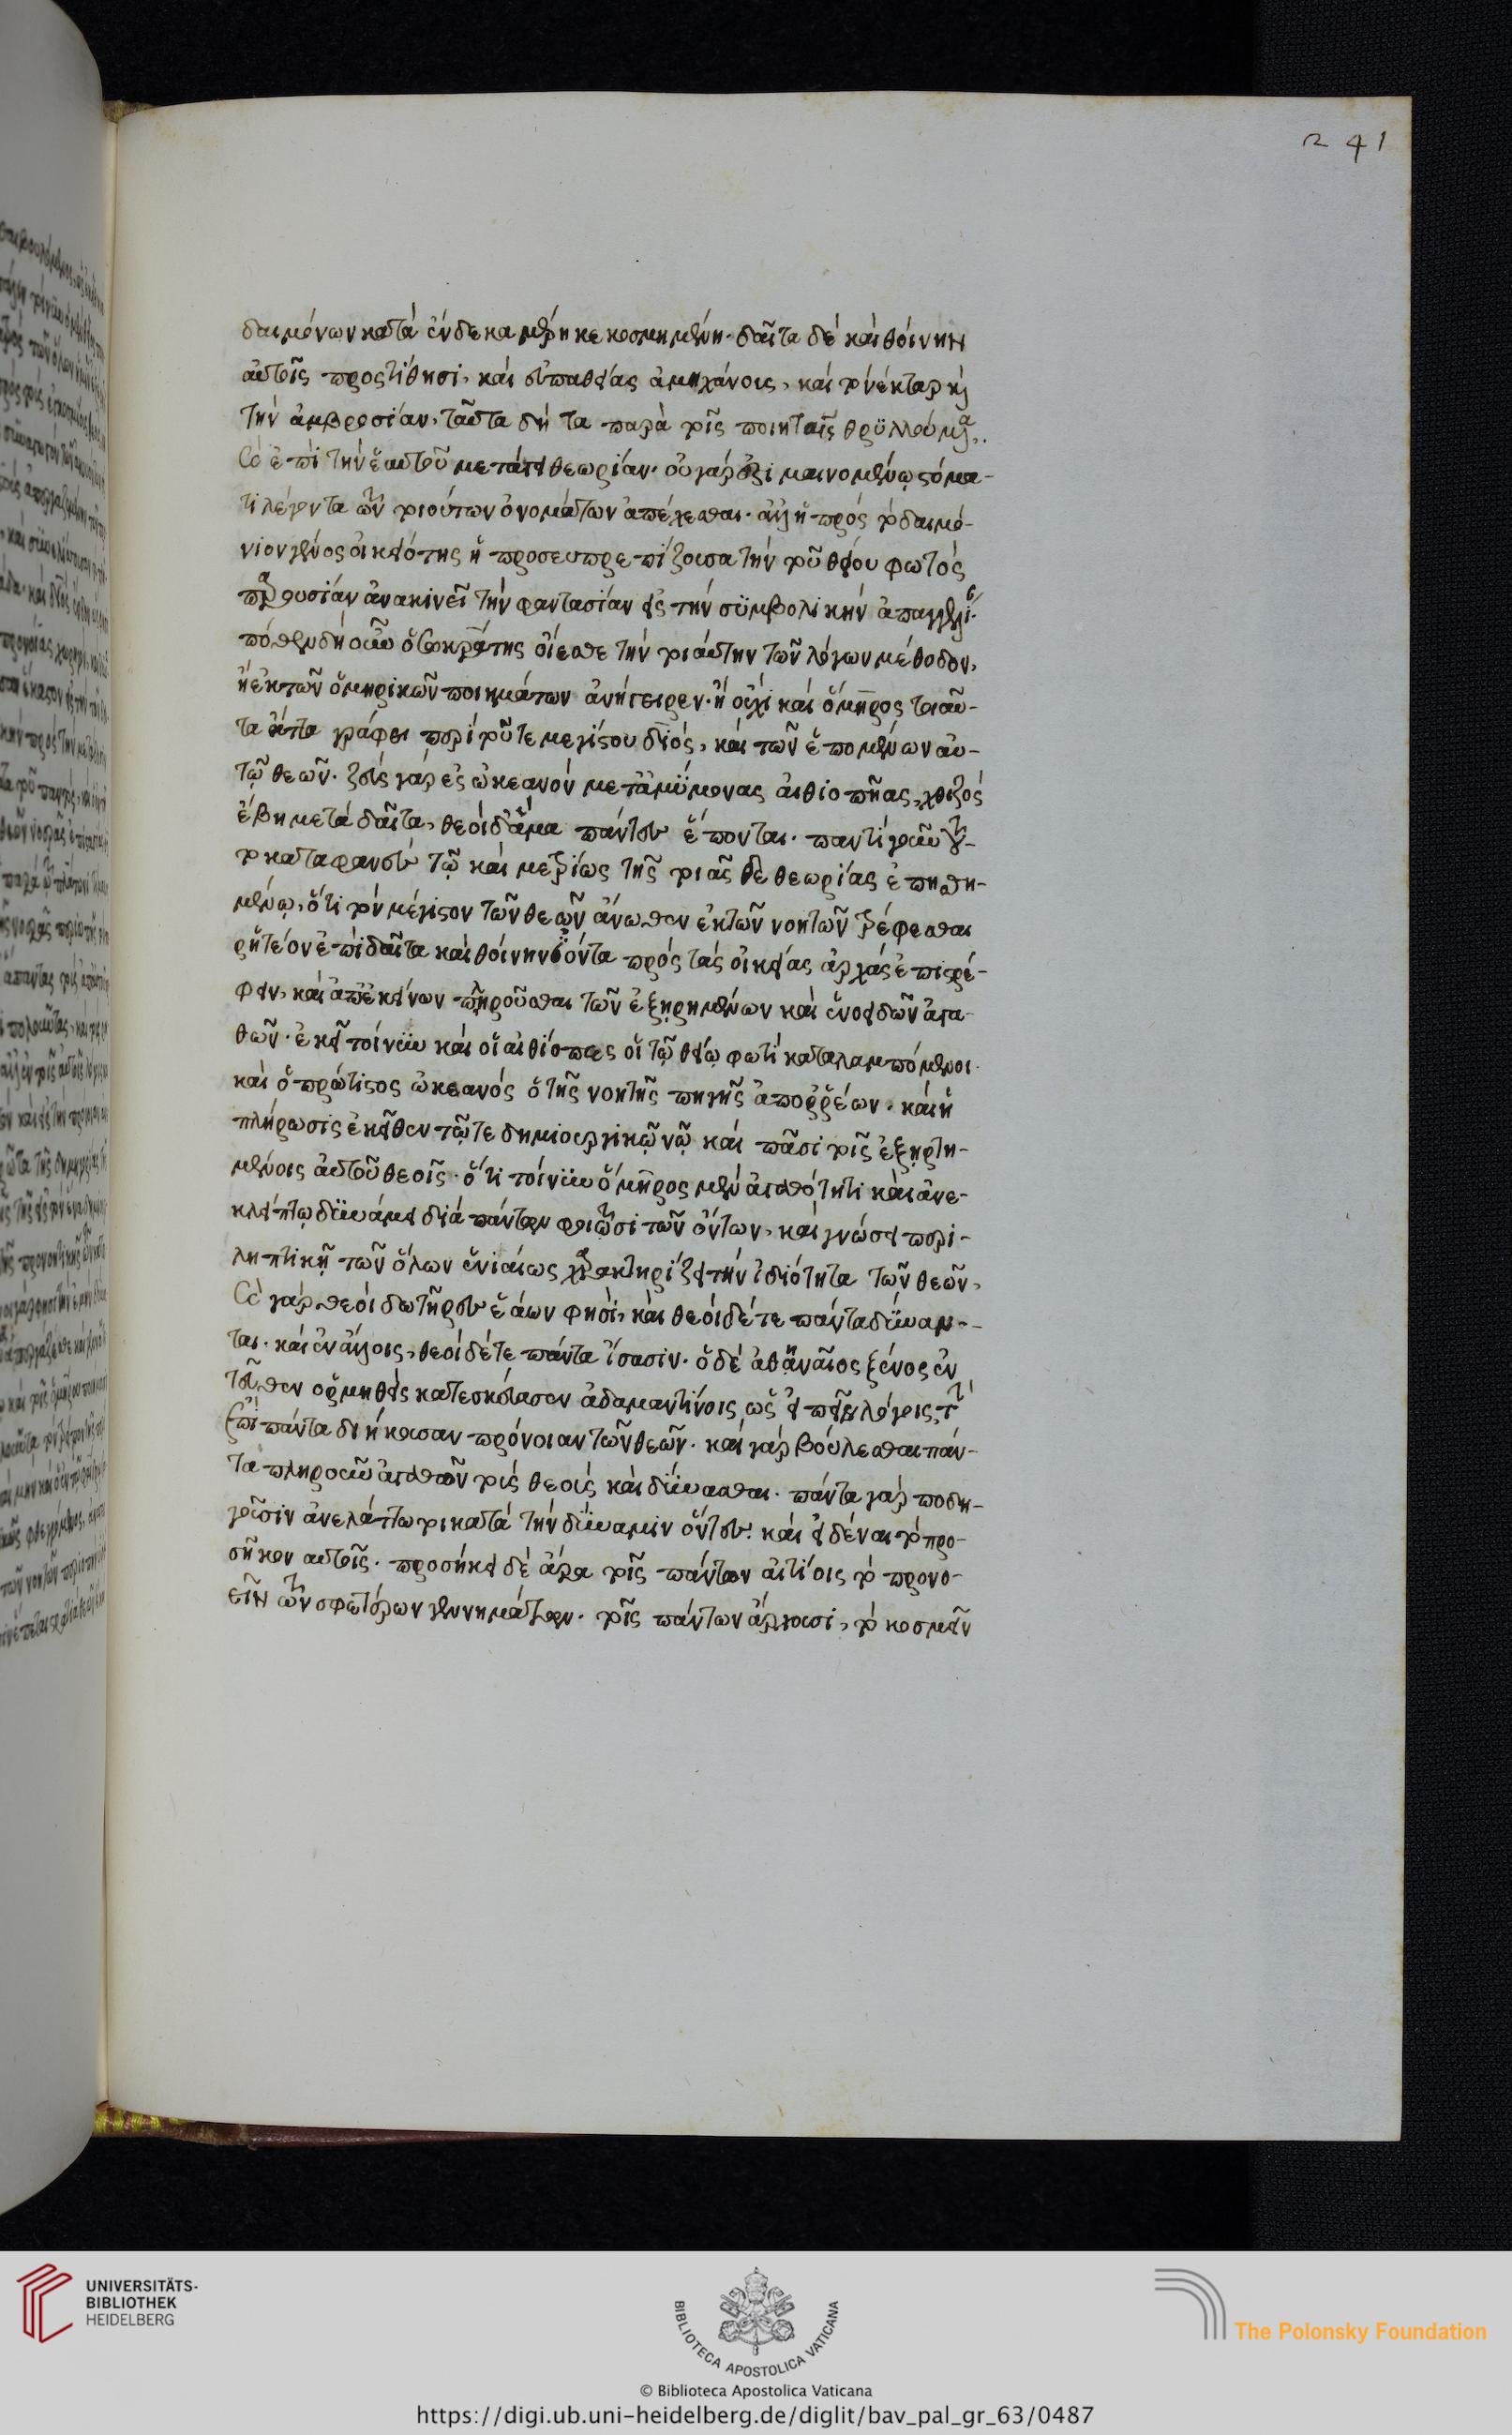 241
δαιμόνων κατὰ ἕνδεκα μέρη κεκοσμημένη. δαῖτα δὲ καὶ θοίνην
αὐτοῖς προστίθησι, καὶ εὐπαθείας ἀμηχάνοις, καὶ τὸ νέκταρ καὶ
τὴν ἀμβροσίαν, ταῦτα δὴ τὰ παρὰ τοῖς ποιηταῖς θρυλλούμενα,
ἐπὶ τὴν ἑαυτοῦ μετάγει θεωρίαν. οὐ γὰρ ἔχει μαινομένῳ στόμα-
τι λέγοντα τῶν τοιούτων ὀνομάτων ἀπέχεσθαι. ἀλλ' ἡ πρὸς τὸ δαιμό-
νιον γένος οἰκειότης ἡ προσευπρεπίζουσα τὴν τοῦ θείου φωτὸς
παρουσίαν ἀνακινεῖ τὴν φαντασίαν εἰς τὴν συμβολικὴν ἀπαγγελί.
πόθεν δὴ οὖν ὁ σωκράτης οἴεσθε τὴν τοιαύτην τῶν λόγων μέθοδον,
ἢ ἐκ τῶν ὁμηρικῶν ποιημάτων ἀνήγειρεν. ἢ οὐχὶ καὶ ὅμηρος τοιαῦ-
τα ἄττα γράφει περὶ τοῦ τε μεγίστου διός, καὶ τῶν ἑπομένων αὐ-
τῷ θεῶν. ζεὺς γὰρ ἐς ὠκεανὸν μετ' ἀμύμονας αἰθιοπῆας, χθιζὸς
ἔβη μετὰ δαῖτα, θεοὶ δ' ἅμα πάντες ἕπονται. παντὶ γοῦν
τὸ καταφανὲς τῷ καὶ μετρίως τῆς τοιᾶς δε θεωρίας ἐπησθη-
μένῳ, ὅτι τὸν μέγιστον τῶν θεῶν ἄνωθεν ἐκ τῶν νοητῶν τρέφεσθαι
ῥητέον ἐπὶ δαῖτα καὶ θοίνην ἰόντα πρὸς τὰς οἰκείας ἀρχὰς ἐπιστρέ-
φειν, καὶ ἀπ' ἐκείνων πληροῦσθαι τῶν ἐξηρημένων καὶ ἑνοειδῶν ἀγα-
θῶν. ἐκεῖ τοίνυν καὶ οἱ αἰθίοπες οἱ τῷ θείῳ φωτὶ καταλαμπόμενοι.
καὶ ὁ πρώτιστος ὠκεανὸς ὁ τῆς νοητῆς πηγῆς ἀπορρέων. καὶ ἡ
πλήρωσις ἐκεῖθεν τῷ τε δημιουργικῷ νῷ καὶ πᾶσι τοῖς ἐξηρτη-
μένοις αὐτοῦ θεοῖς. ὅτι τοίνυν ὅμηρος μὲν ἀγαθότητι καὶ ἀνε-
κλείπτῳ δυνάμει διὰ πάντων φοιτώσῃ τῶν ὄντων, καὶ γνώσει περι-
ληπτικῇ τῶν ὅλων ἑνιαίως χαρακτηρίζει τὴν ἰδιότητα τῶν θεῶν,
γὰρ θεοὶ δωτῆρες ἑάων φησὶ, καὶ θεοὶ δέ τε πάντα δύναν-
ται. καὶ ἐν ἄλλοις, θεοὶ δέ τε πάντα ἴσασιν. ὁ δὲ ἀθηναῖος ξένος ἐν
τεῦθεν ὁρμηθεὶς κατεσκεύασεν ἀδαμαντίνοις ὡς εἰπεῖν λόγοις, τὴν
ἐπὶ πάντα διήκουσαν πρόνοιαν τῶν θεῶν. καὶ γὰρ βούλεσθαι πάν-
τα πληροῦν ἀγαθῶν τοὺς θεοὺς καὶ δύνασθαι. πάντα γὰρ ποδη-
γοῦσιν ἀνελάττωτοι κατὰ τὴν δύναμιν ὄντες. καὶ εἰδέναι τὸ προ-
σῆκον αὐτοῖς. προσήκει δὲ ἄρα τοῖς πάντων αἰτίοις τὸ προνο-
εῖν τῶν σφετέρων γεννημάτων. τοῖς πάντων ἄρχουσι, τὸ κοσμεῖν
UNIVERSITÄTS-
BIBLIOTHEK
HEIDELBERG
BIBLIOTECA APOSTOLICA VATICANA
The Polonsky Foundation
© Biblioteca Apostolica Vaticana
https://digi.ub.uni-heidelberg.de/diglit/bav_pal_gr_63/0487